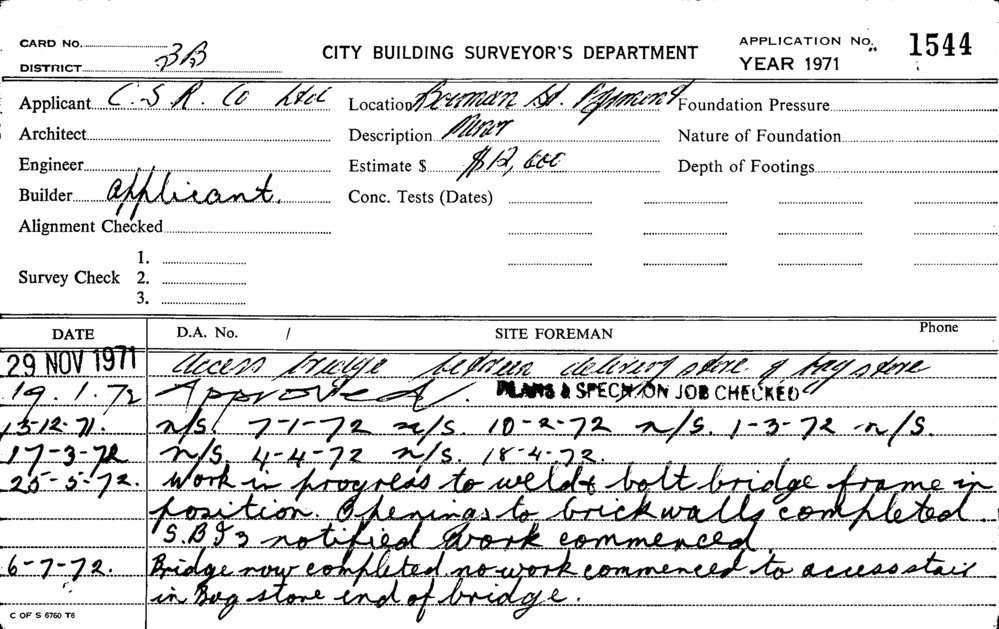 CARD NO.
DISTRICT 3B
CITY BUILDING SURVEYOR'S DEPARTMENT
APPLICATION No. 1544
YEAR 1971
Applicant C.S.R. Co Ltd Location Bowman St. Pyrmont Foundation Pressure
Architect Description Minor Nature of Foundation
Engineer Estimate $ $12,000 Depth of Footings
Builder applicant. Conc. Tests (Dates)
Alignment Checked
Survey Check 1.
2.
3.
DATE D.A. No. / SITE FOREMAN Phone
29 NOV 1971 Access bridge between delivery store & bag store
19.1.72 Approved. PLANS & SPECN/ON JOB CHECKED
13-12-71. n/S. 7-1-72 n/S. 10-2-72 n/S. 1-3-72 n/S.
17-3-72 n/S. 4-4-72 n/S. 18-4-72.
25-5-72. Work in progress to weld & bolt bridge frame in
position. Openings to brick walls completed
S.B.I 3 notified work commenced.
6-7-72. Bridge now completed no work commenced to access stair
in Bag store end of bridge.
C OF S 6760 T6